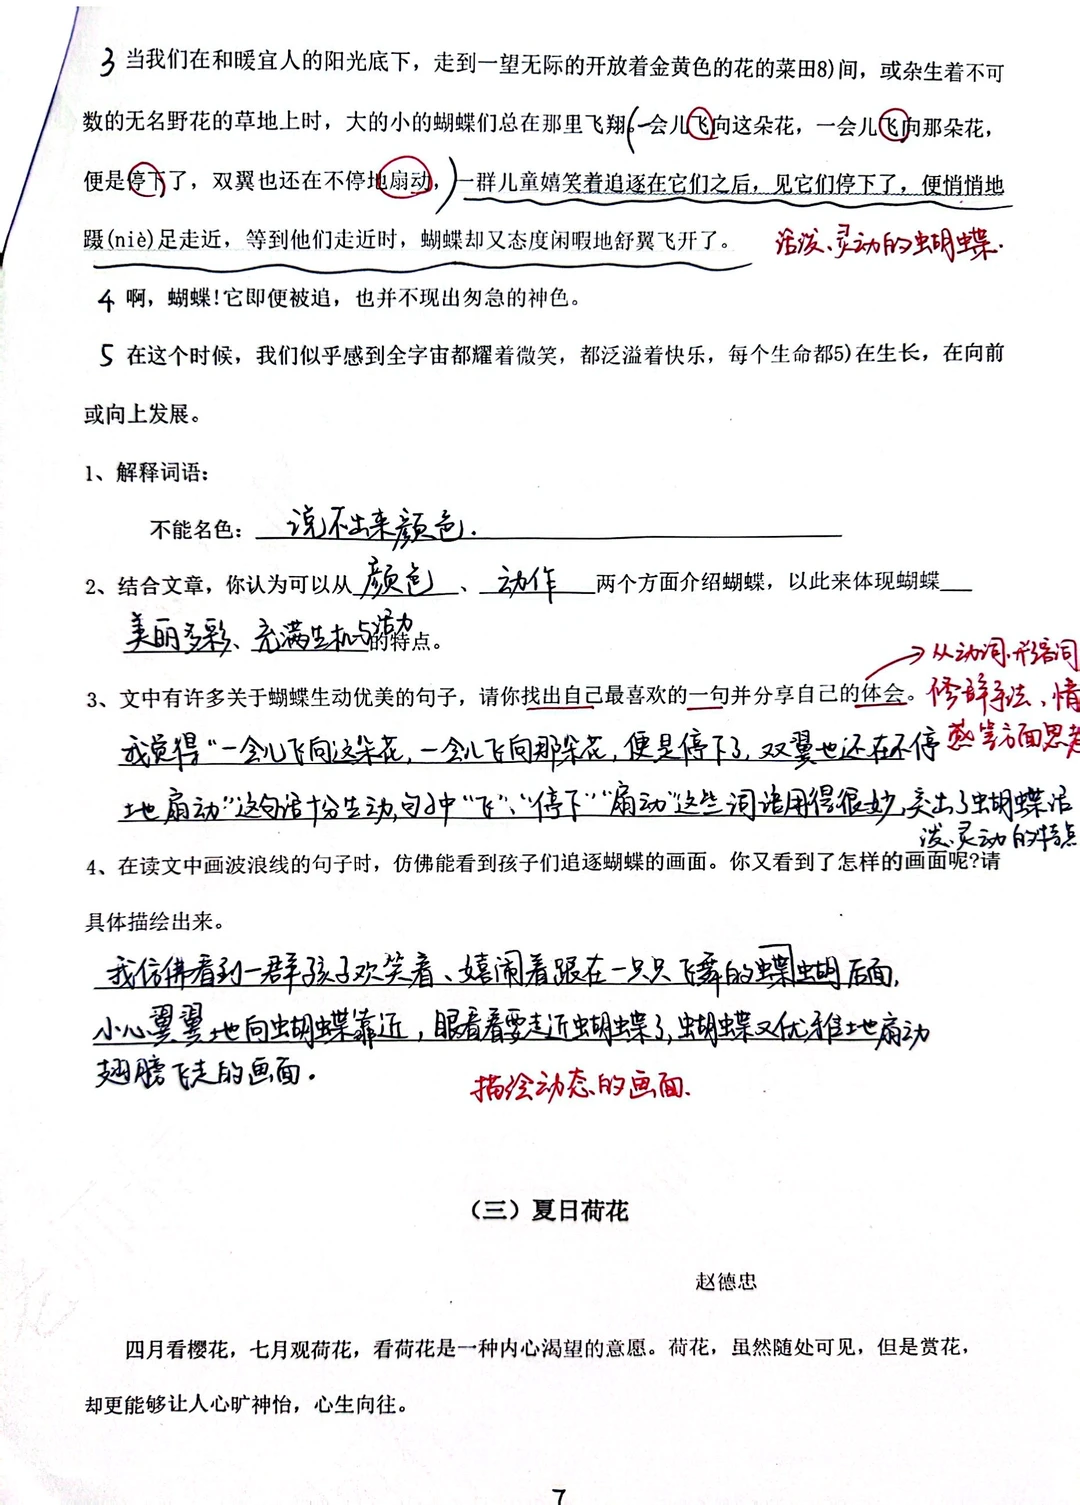 3 当我们在和暖宜人的阳光底下，走到一望无际的开放着金黄色的花的菜田8)间，或杂生着不可
数的无名野花的草地上时，大的小的蝴蝶们总在那里飞翔。(一会儿飞向这朵花，一会儿飞向那朵花，
便是停下了，双翼也还在不停地扇动，)一群儿童嬉笑着追逐在它们之后，见它们停下了，便悄悄地
蹑(niè)足走近，等到他们走近时，蝴蝶却又态度闲暇地舒翼飞开了。 活泼、灵动的蝴蝶.
4 啊，蝴蝶!它即便被追，也并不现出匆急的神色。
5 在这个时候，我们似乎感到全字宙都耀着微笑，都泛溢着快乐，每个生命都5)在生长，在向前
或向上发展。
1、解释词语:
不能名色: 说不出来颜色.
2、结合文章，你认为可以从 颜色 、 动作 两个方面介绍蝴蝶，以此来体现蝴蝶
美丽多彩、充满生机与活力 的特点。
→从动词、形容词
3、文中有许多关于蝴蝶生动优美的句子，请你找出自己最喜欢的一句并分享自己的体会。 修辞手法、情
我觉得"一会儿飞向这朵花,一会儿飞向那朵花,便是停下了,双翼也还在不停 感等方面思考
地扇动"这句话十分生动,句中"飞"、"停下""扇动"这些词语用得很妙,突出了蝴蝶活
泼、灵动的特点
4、在读文中画波浪线的句子时，仿佛能看到孩子们追逐蝴蝶的画面。你又看到了怎样的画面呢?请
具体描绘出来。
我仿佛看到一群孩子欢笑着、嬉闹着跟在一只只飞舞的蝶蝴后面,
小心翼翼地向蝴蝶靠近,眼看着要走近蝴蝶了,蝴蝶又优雅地扇动
翅膀飞走的画面.
描绘动态的画面.
（三）夏日荷花
赵德忠
四月看樱花，七月观荷花，看荷花是一种内心渴望的意愿。荷花，虽然随处可见，但是赏花，
却更能够让人心旷神怡，心生向往。
7